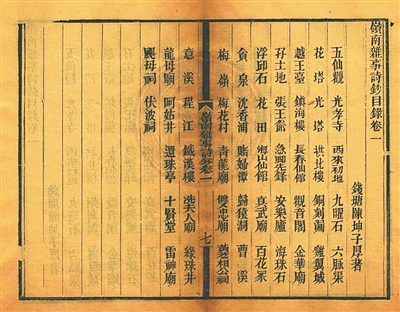 嶺南雜事詩鈔目錄卷一
錢塘陳坤子厚著
五仙觀 光孝寺 西來初地 九曜石 六脈渠
花塔 光塔 拱北樓 銅刻漏 雞翼城
越王臺 鎮海樓 長春仙館 觀音閣 金華廟
孖土地 張王爺 急腳先鋒 安樂廬 海珠石
浮邱石 花田 山仙館 真武廟 百花冢
貪泉 沈香浦 賭婦潭 歸猿洞 曹溪
梅嶺 梅花村 青龍廟 雙忠廟 相公祠
嶺南雜事詩鈔卷一 七
意溪 程江 鐵漢樓 冼夫人廟 綠珠井
龍母廟 阿姑井 還珠亭 十賢堂 雷神廟
颶母祠 伏波祠